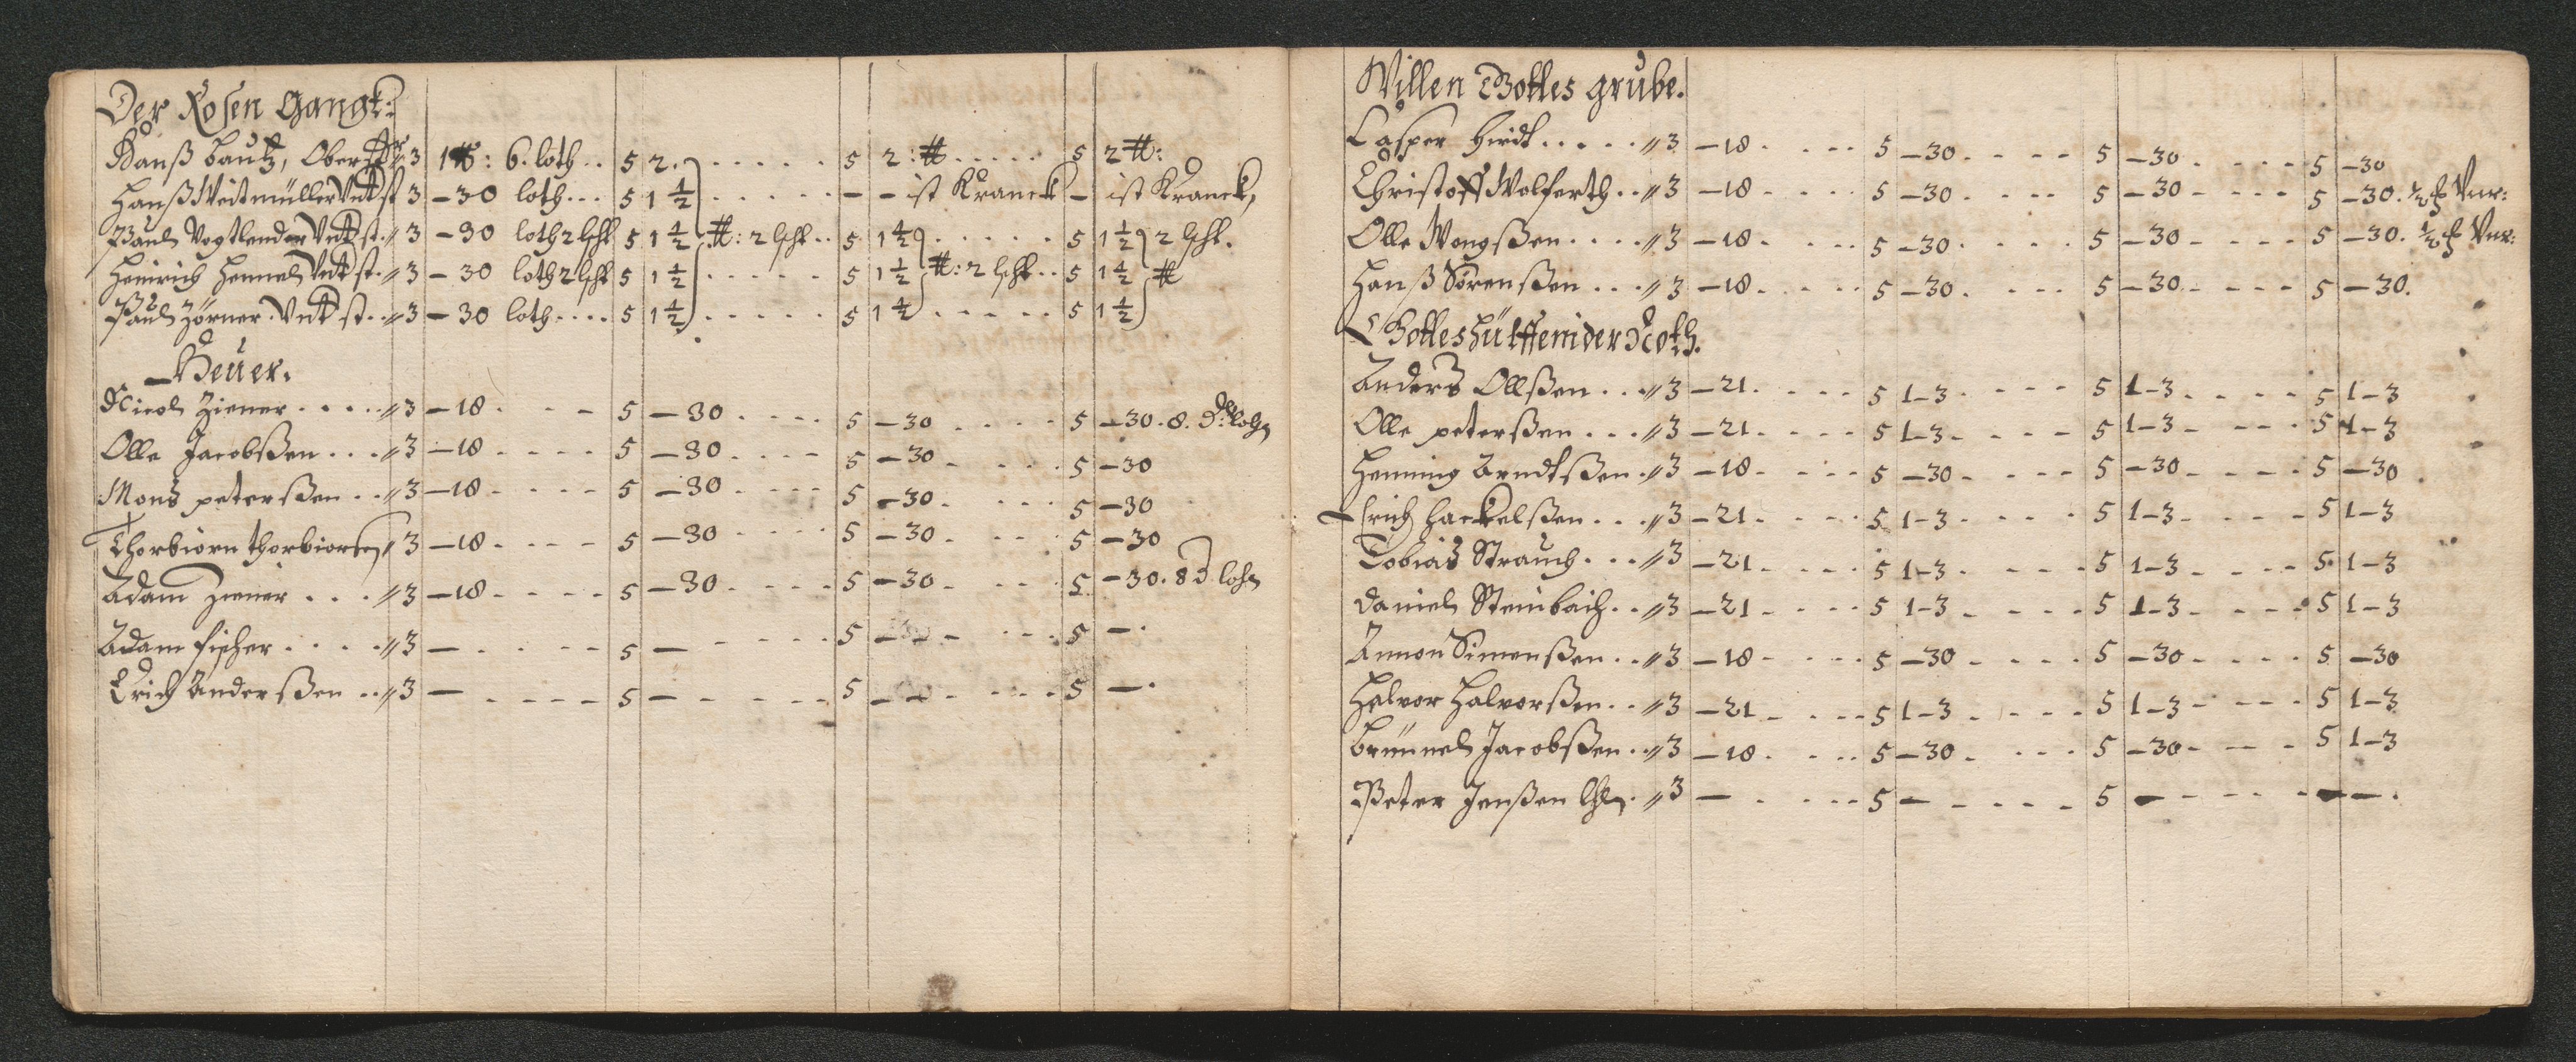 Der Rosen Gangk:
Hanß Bautz, Oberst: 3 1 ℔: 6. loth .. 5 2. . . . . . 5 2: ℔ . . . . . 5 2 ℔:
Hanß Weitmüller Vnt st 3 – 30 loth ... 5 1 ½ . . . . . – – ist Kranck – ist Kranck,
Paul Vogtlender Vnt st. 3 – 30 loth 2 lßht 5 1 ½ ℔: 2 lßht .. 5 1 ½ . . . . . 5 1 ½ 2 lßht.
Heinrich Hennel Vnt st. 3 – 30 loth 2 lßht 5 1 ½ . . . . . 5 1 ½ ℔: 2 lßht .. 5 1 ½ ℔
Paul Zörner. Vnt st. 3 – 30 loth .... 5 1 ½ . . . . . 5 1 ½ . . . . . 5 1 ½
Heuer.
Nicol Ziener . . . . 3 – 18 . . . 5 – 30 . . . . 5 – 30 . . . . 5 – 30. 8. D: lohn
Olle Jacobßen . . . 3 – 18 . . . . 5 – 30 . . . . 5 – 30 . . . . 5 – 30
Mons peterßen . . 3 – 18 . . . . 5 – 30 . . . . 5 – 30 . . . . 5 – 30
Thorbiorn thorbiorßen 3 – 18 . . . . 5 – 30 . . . . 5 – 30 . . . . 5 – 30
Adam Ziener . . . 3 – 18 . . . . 5 – 30 . . . . 5 – 30 . . . . 5 – 30. 8 D lohn
Adam fischer . . . . 3 – . . . . 5 – . . . . 5 – – . . . 5 – .
Erich Anderßen . . 3 – . . . . 5 – . . . . 5 – – . . . . 5 – .
Willen Gottes grube.
Casper Hirdt . . . . . 3 – 18 . . . . 5 – 30 . . . . 5 – 30 . . . . 5 – 30
Christoff Wolferth . . 3 – 18 . . . . 5 – 30 . . . . 5 – 30 . . . . 5 – 30. ½
Olle Mongßen . . . . 3 – 18 . . . . 5 – 30 . . . . 5 – 30 . . . . 5 – 30. ½
Hanß Sörenßen . . . 3 – 18 . . . . 5 – 30 . . . . 5 – 30 . . . . 5 – 30.
Gottes hülffe in der Noth.
Anders Ollßen . . . 3 – 21 . . . . 5 1 – 3 . . . . 5 1 – 3 . . . . 5 1 – 3
Olle peterßen . . . 3 – 21 . . . . 5 1 – 3 . . . . 5 1 – 3 . . . . 5 1 – 3
Henning Arndtßen . 3 – 18 . . . . 5 – 30 . . . . 5 – 30 . . . . 5 – 30
Erich Hackelßen . . . 3 – 21 . . . . 5 1 – 3 . . . . 5 1 – 3 . . . . 5 1 – 3
Tobias Strauch . . . 3 – 21 . . . . 5 1 – 3 . . . . 5 1 – 3 . . . . 5 1 – 3
Daniel Steinbach . . 3 – 21 . . . . 5 1 – 3 . . . . 5 1 – 3 . . . . 5 1 – 3
Annon Simenßen . . 3 – 18 . . . . 5 – 30 . . . . 5 – 30 . . . . 5 – 30
Halvor Halvorßen . . 3 – 21 . . . . 5 1 – 3 . . . . 5 1 – 3 . . . . 5 1 – 3
Brünnel Jacobßen . . 3 – 18 . . . . 5 – 30 . . . . 5 – 30 . . . . 5 1 – 3
Peter Jenßen 3 – . . . . 5 – . . . . 5 – . . . . – – .